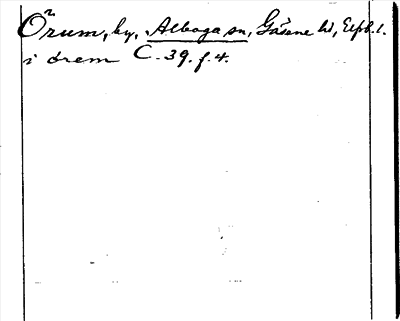 Örum, by, Alboga sn, Gäsene hd, Elfsb. l.
i örem C. 39. f. 4.